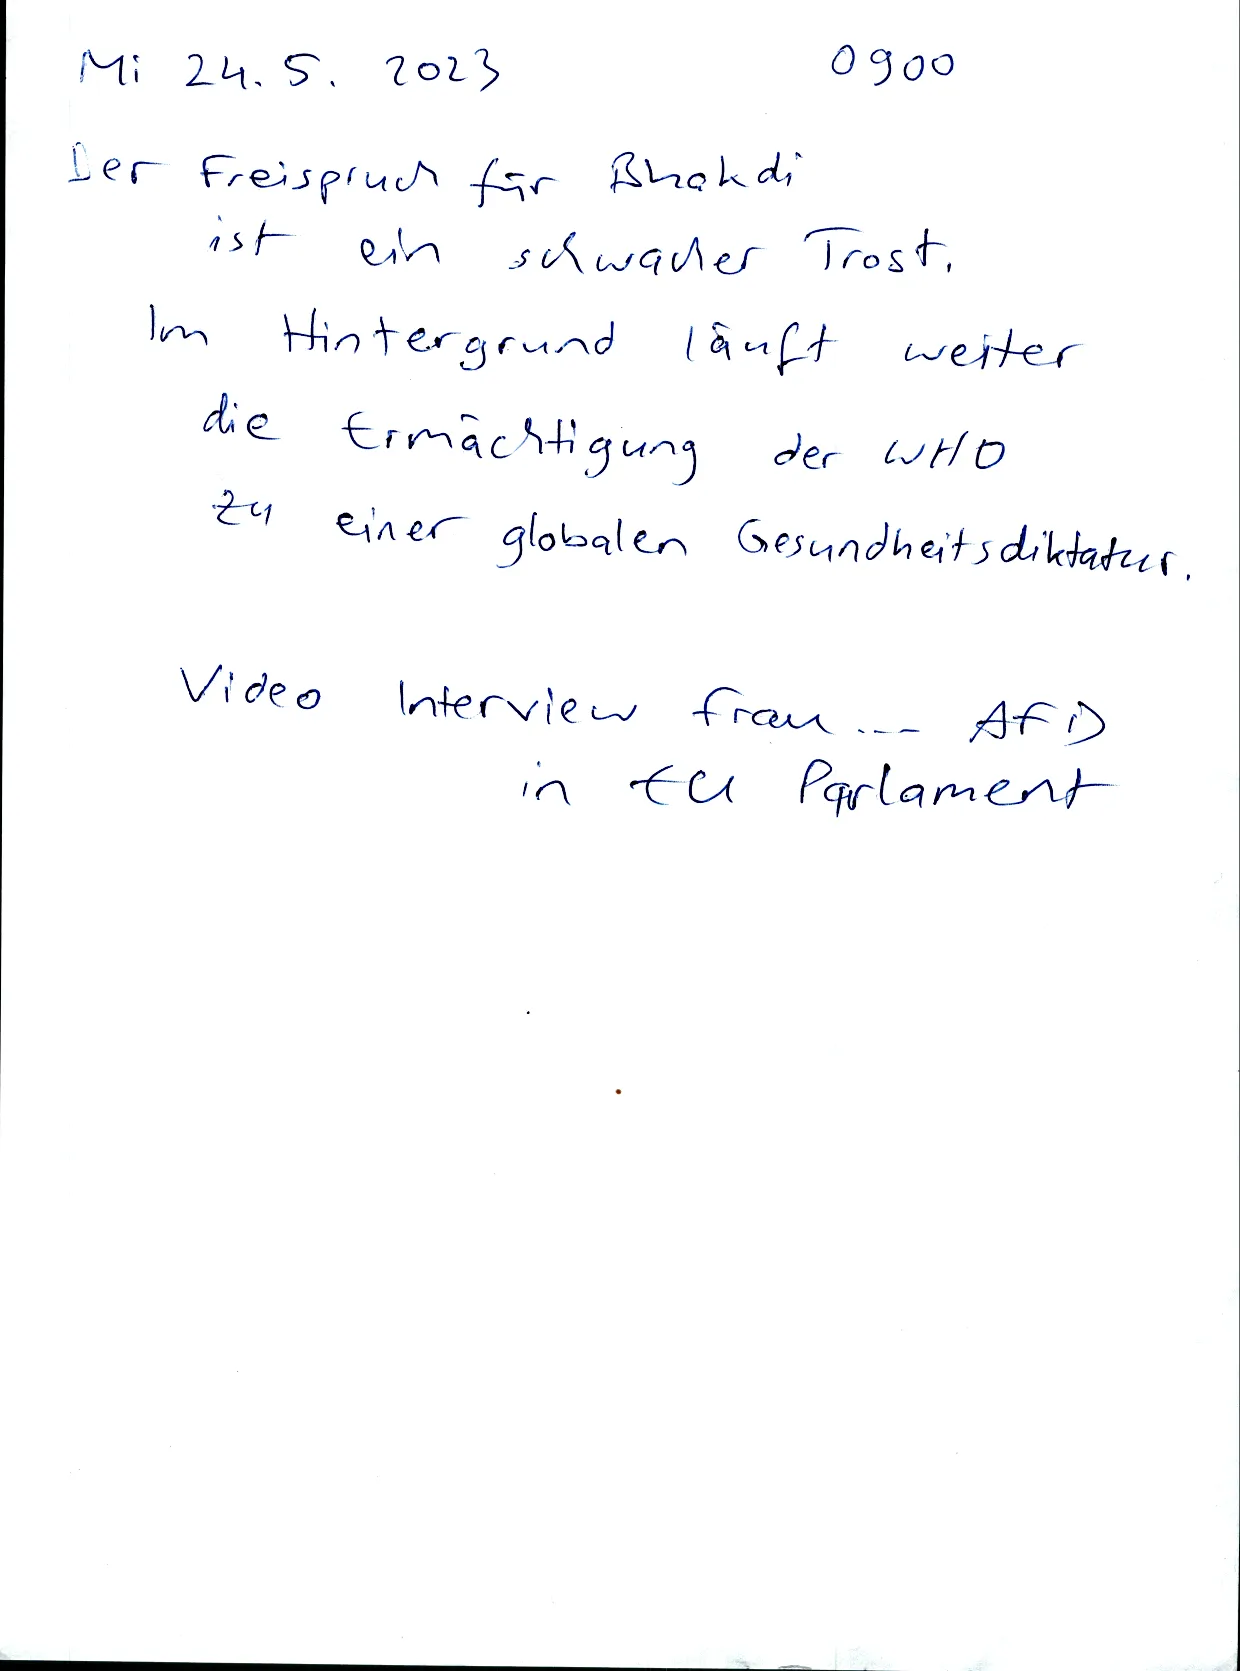 Mi 24.5. 2023 0900
Der Freispruch für Bhakdi
ist ein schwacher Trost.
Im Hintergrund läuft weiter
die Ermächtigung der WHO
zu einer globalen Gesundheitsdiktatur.
Video Interview Frau... AfD
in EU Parlament